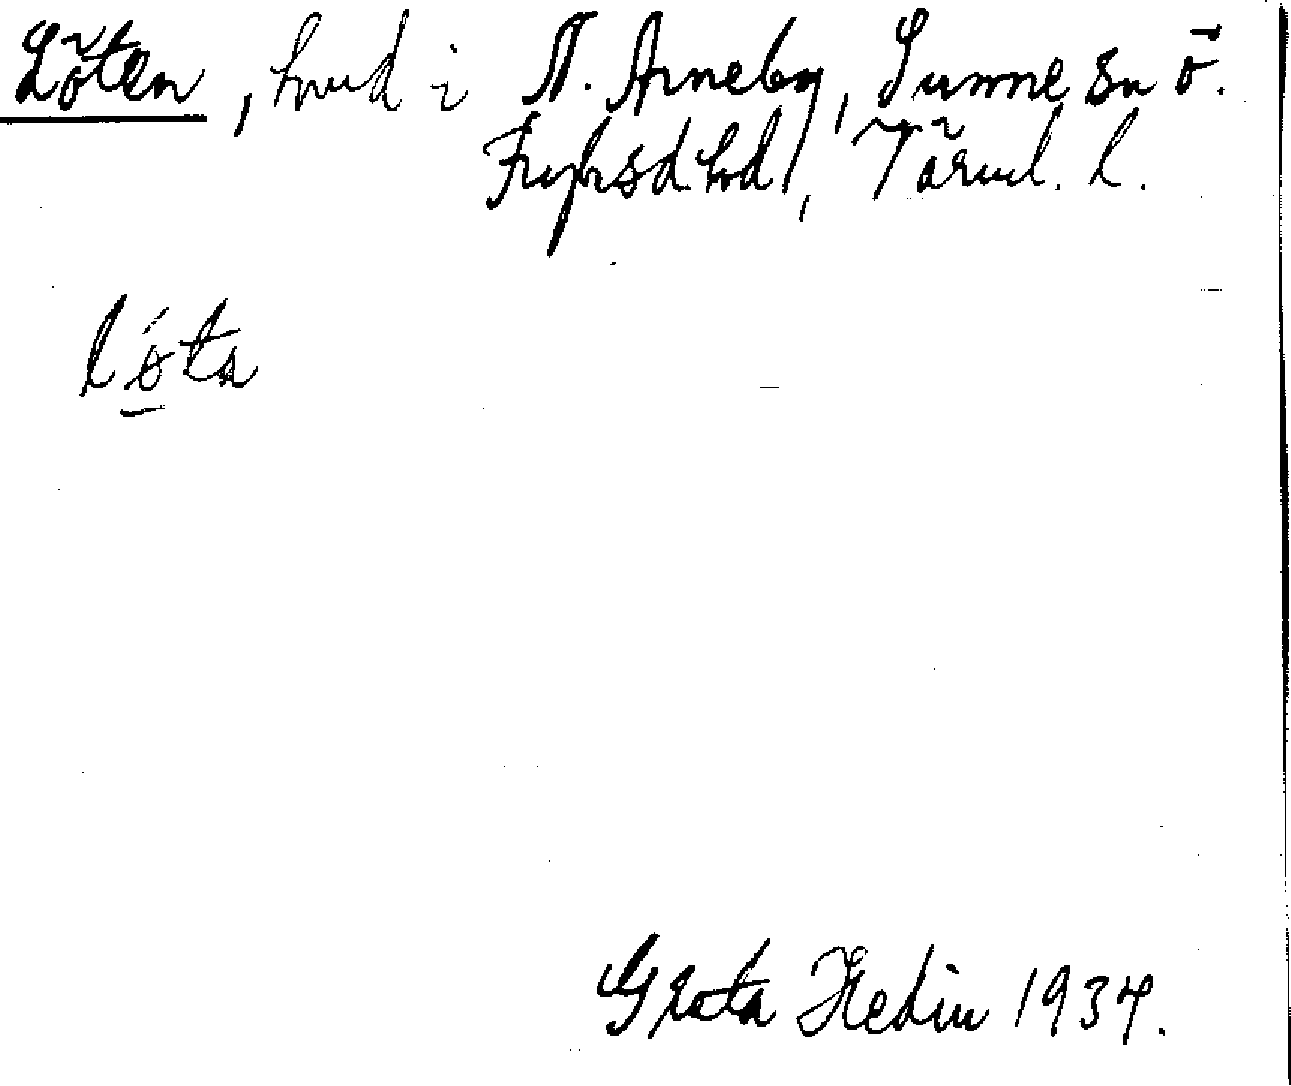 Löten, hmd i N. Arneby, Sunne sn Ö.
Fryksd. hd, Värml. l.
lǿta
Greta Hedin 1934.